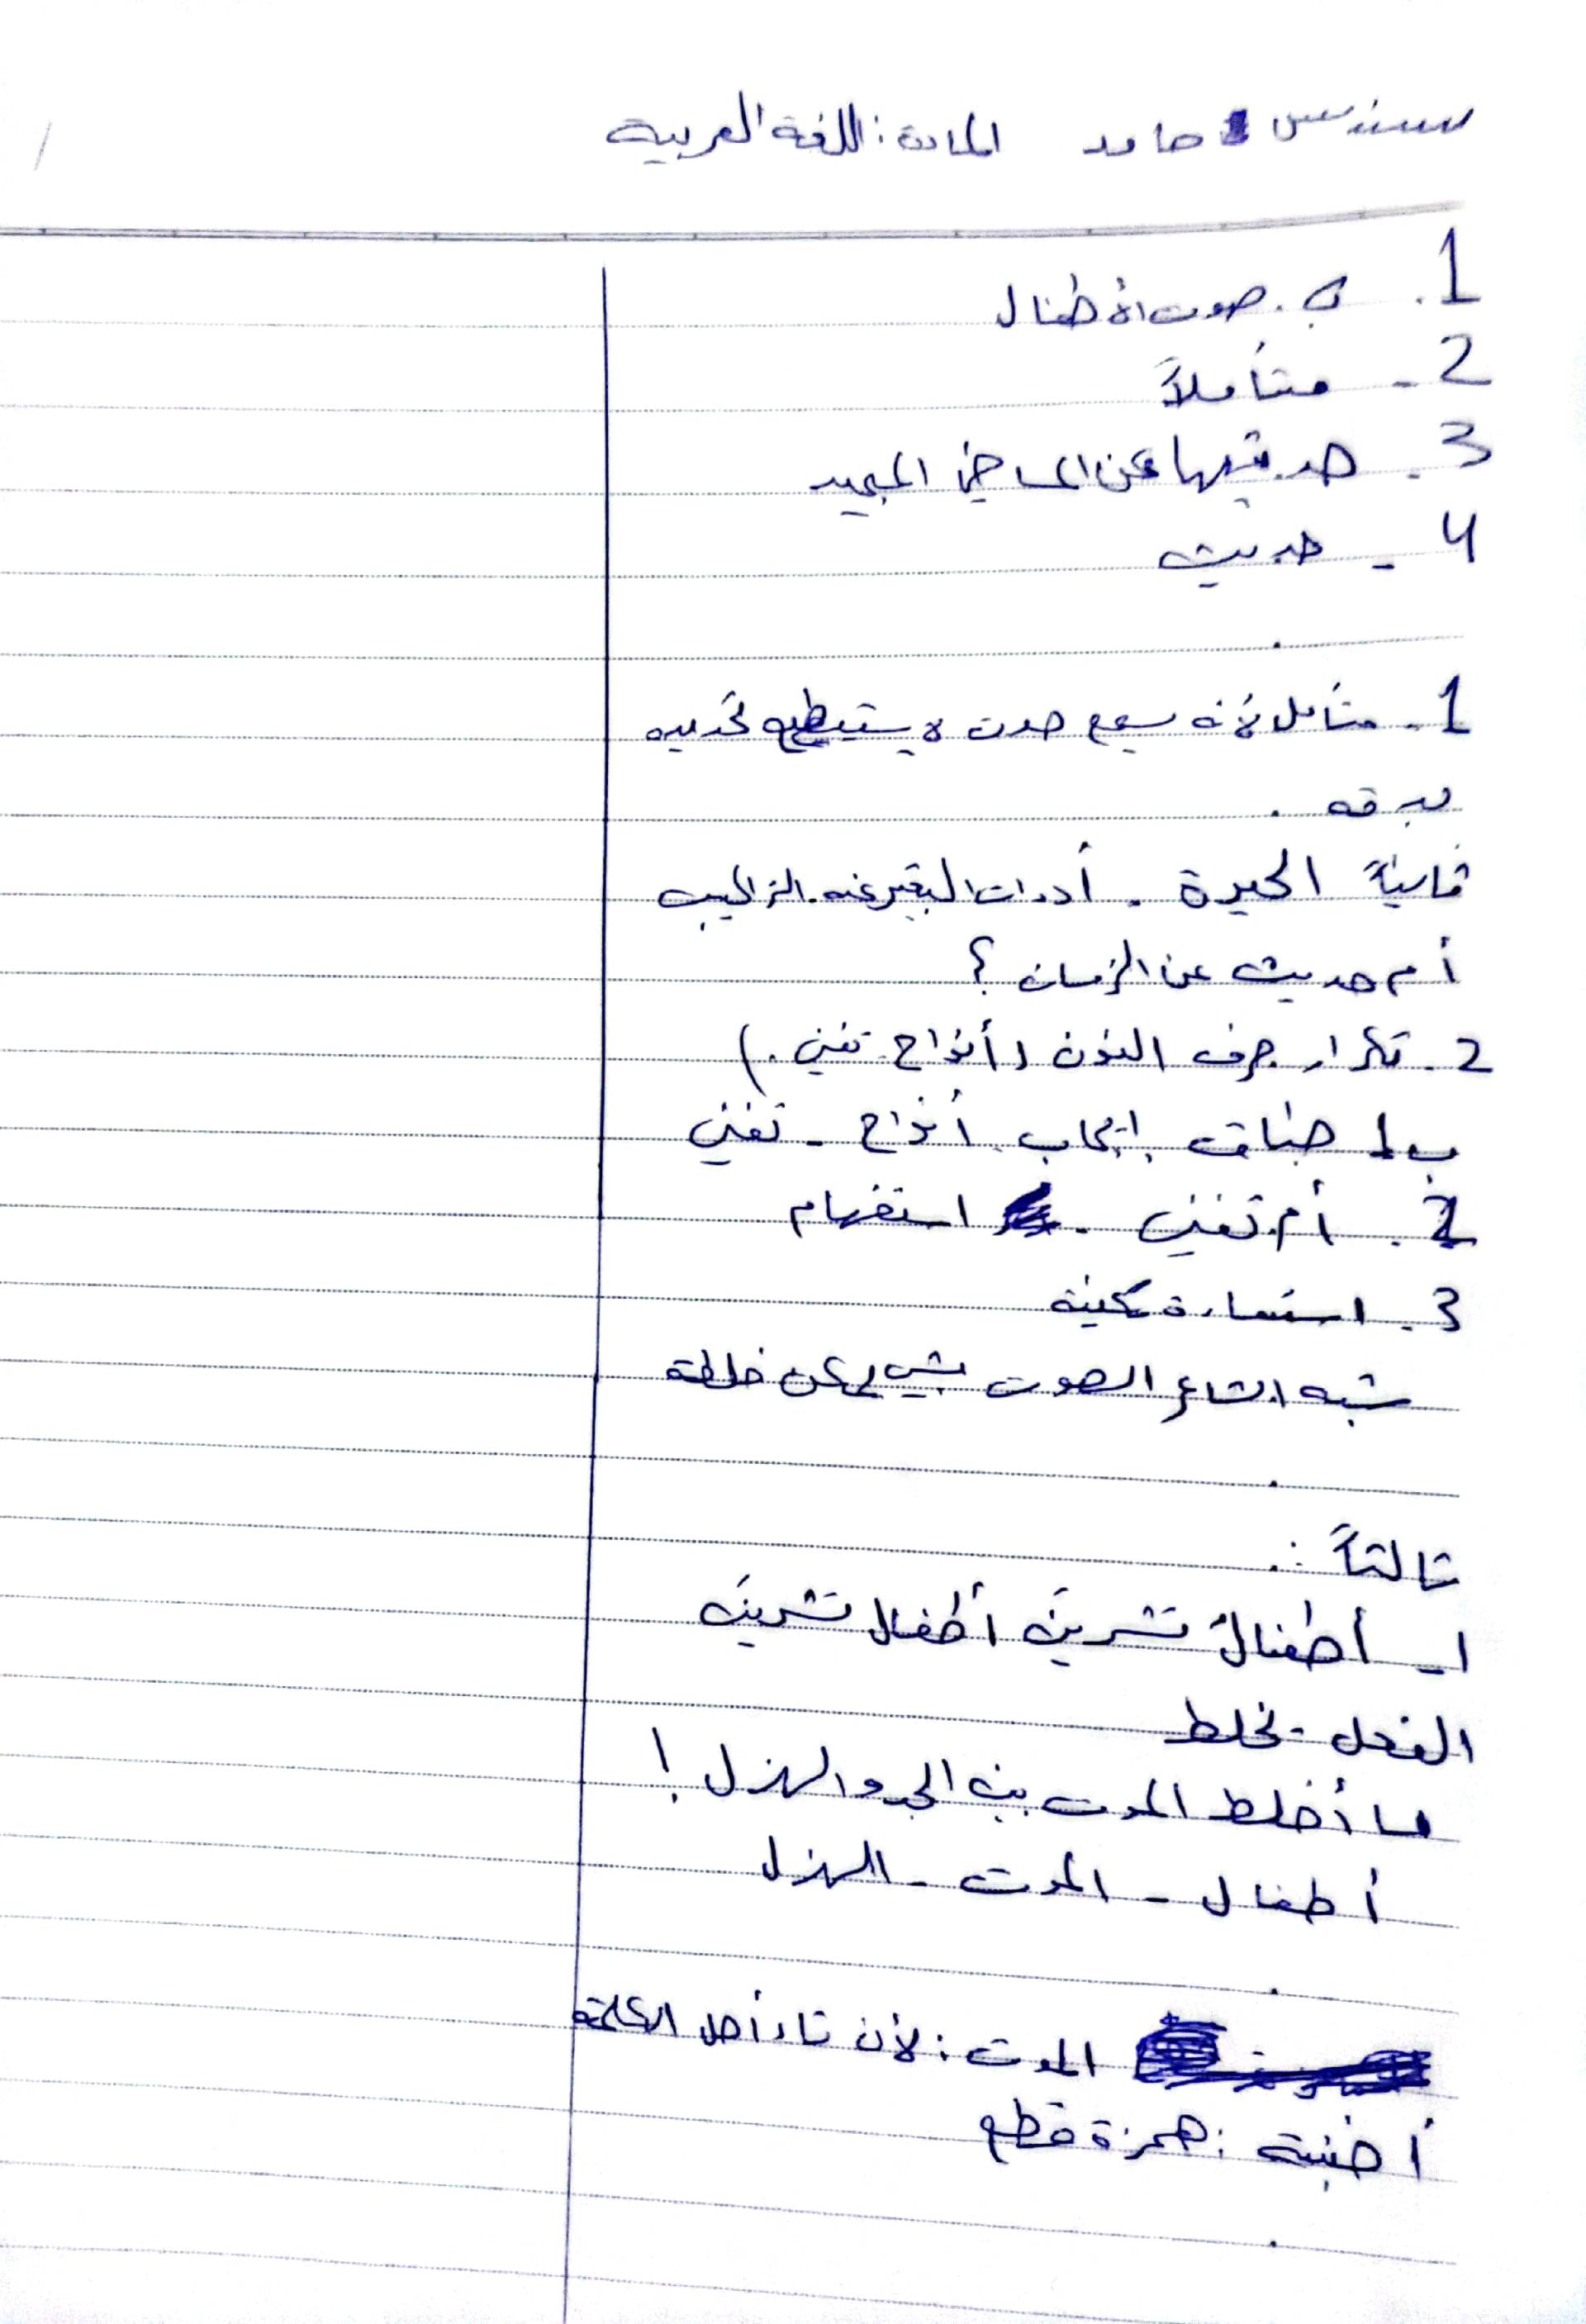 سندس حامد المادة: اللغة العربية
1. ب. صوت الأطفال
2- متأملاً
3. حديثها عن الماضي المجيد
4- حديث
1- متأمل لأنه سمع صوت لا يستيطع تحديده
بدقه.
ثانياً الحيرة. أدوات التعبير عنه. التراكيب
أم حديث عن الزمان؟
2- تكرار حرف النون (أنواح. تغني.)
ب1 طباق إيجاب. أنواح - تغني
2. أم تغني. استفهام
3. استعارة مكنية
شبه الشاعر الصوت بشيء يمكن خلطه
ثالثاً:
1- أطفالُ تشرين أطفال تشرين
الفعل - تخلط
ما أخلط الموت بين الجد والهزل!
أطفال - الموت - الهزل
الموت: لأن تاء أصل الكلمة
أغنية: همزة قطع